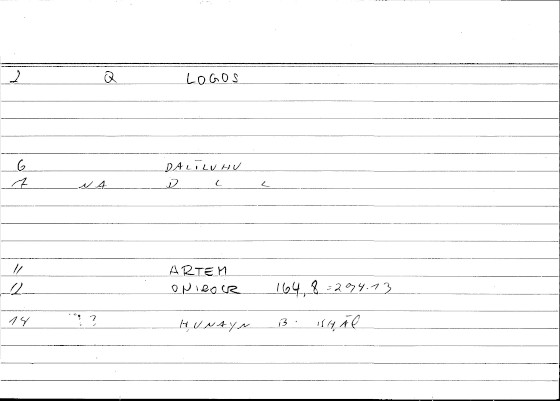 2 Q LOGOS
6 DALĪLUHU
7 NA D L L
11 ARTEM
12 ONIROCR 164,8=294.13
14 ?? ḤUNAYN B. ISḤĀQ